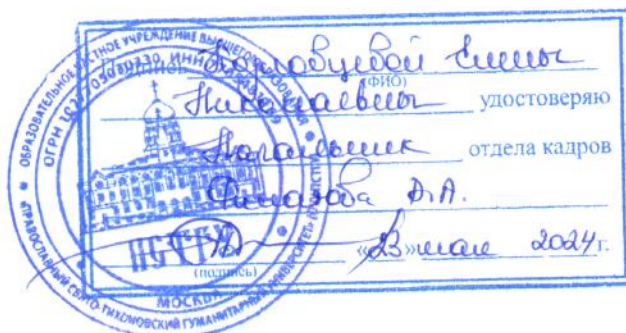 Подпись Торговцевой Елены
(ФИО)
Николаевны удостоверяю
Начальник отдела кадров
Д.А.
(подпись) «23» мая 2024 г.
ОБРАЗОВАТЕЛЬНОЕ ЧАСТНОЕ УЧРЕЖДЕНИЕ ВЫСШЕГО ОБРАЗОВАНИЯ
ПРАВОСЛАВНЫЙ СВЯТО-ТИХОНОВСКИЙ ГУМАНИТАРНЫЙ УНИВЕРСИТЕТ
ОГРН ИНН
ПСТГУ
МОСКВА